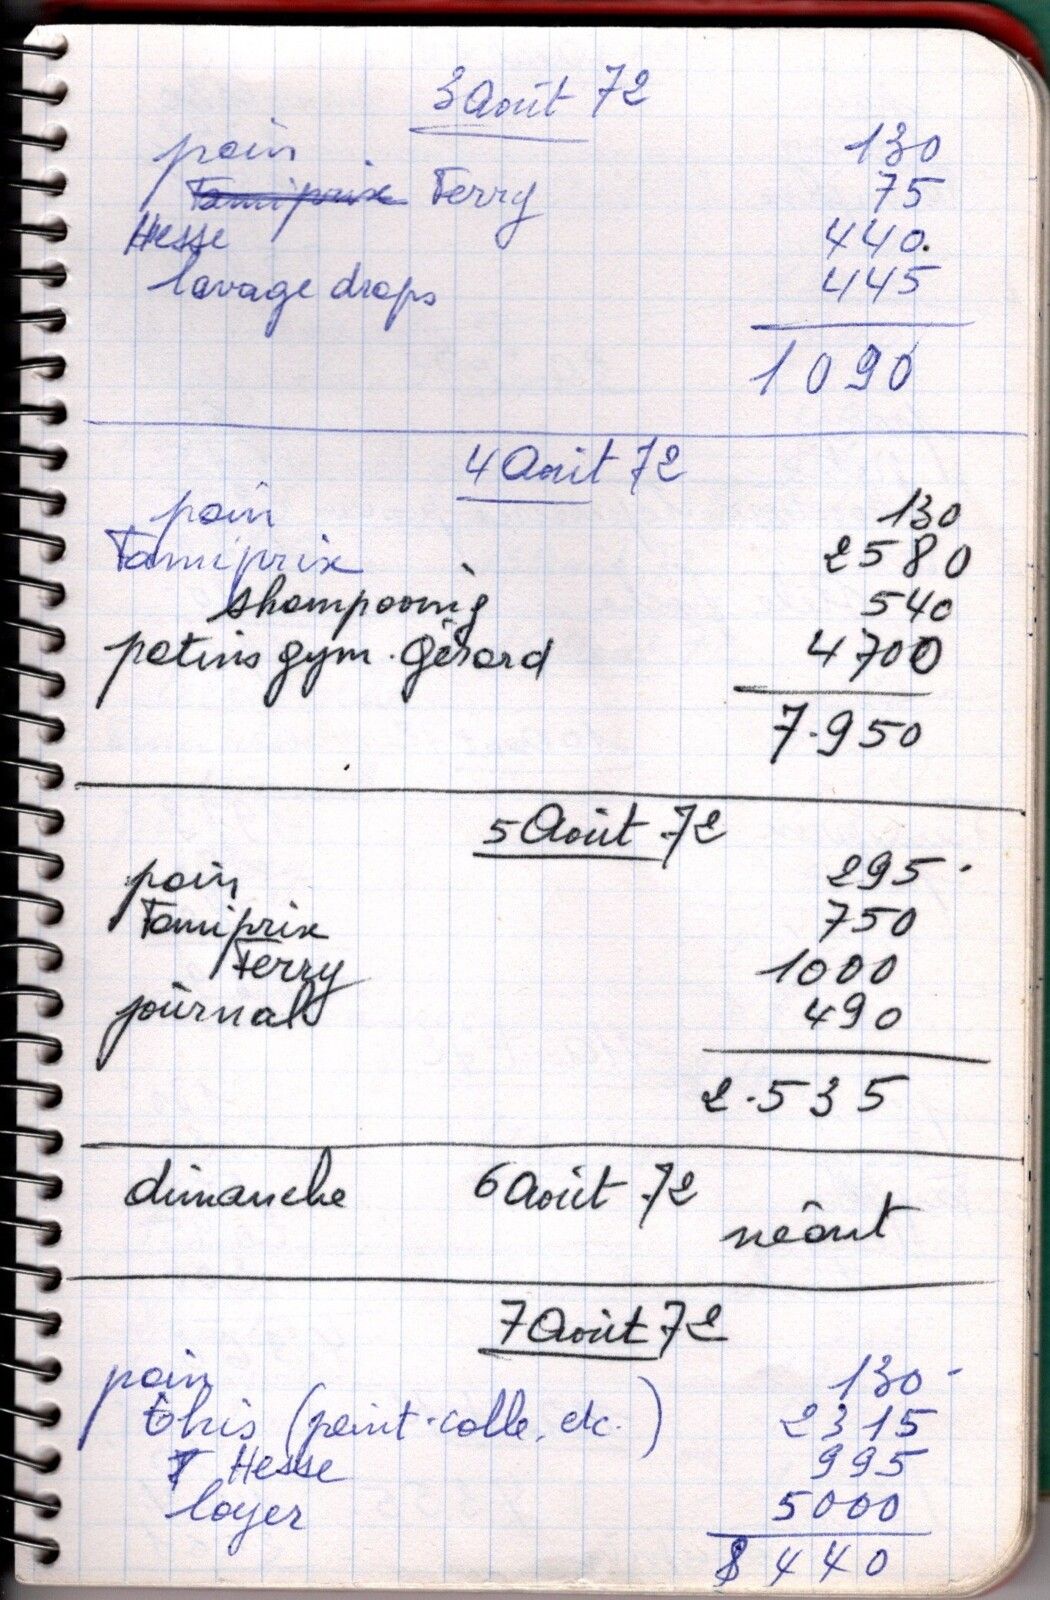 3 Août 72
pain 130
Tamiprix Terry 75
Hesse 440.
lavage draps 445
1090
4 Août 72
pain 130
Tamiprix 2580
shampooing 540
patins gym. Gérard 4700
7.950
5 Août 72
pain 295
Tamiprix 750
Terry 1000
journal 490
2.535
dimanche 6 Août 72 néant
7 Août 72
pain 130
(peint. colle, etc.) 2315
Hesse 995
loyer 5000
8440